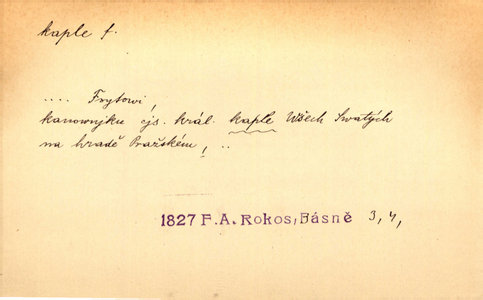 kaple f.
.... Frytowi,
kanownjku cjs. král. kaple Wšech Swatých
na hradě Pražském, ..
1827 F.A. Rokos, Básně 3, 4,